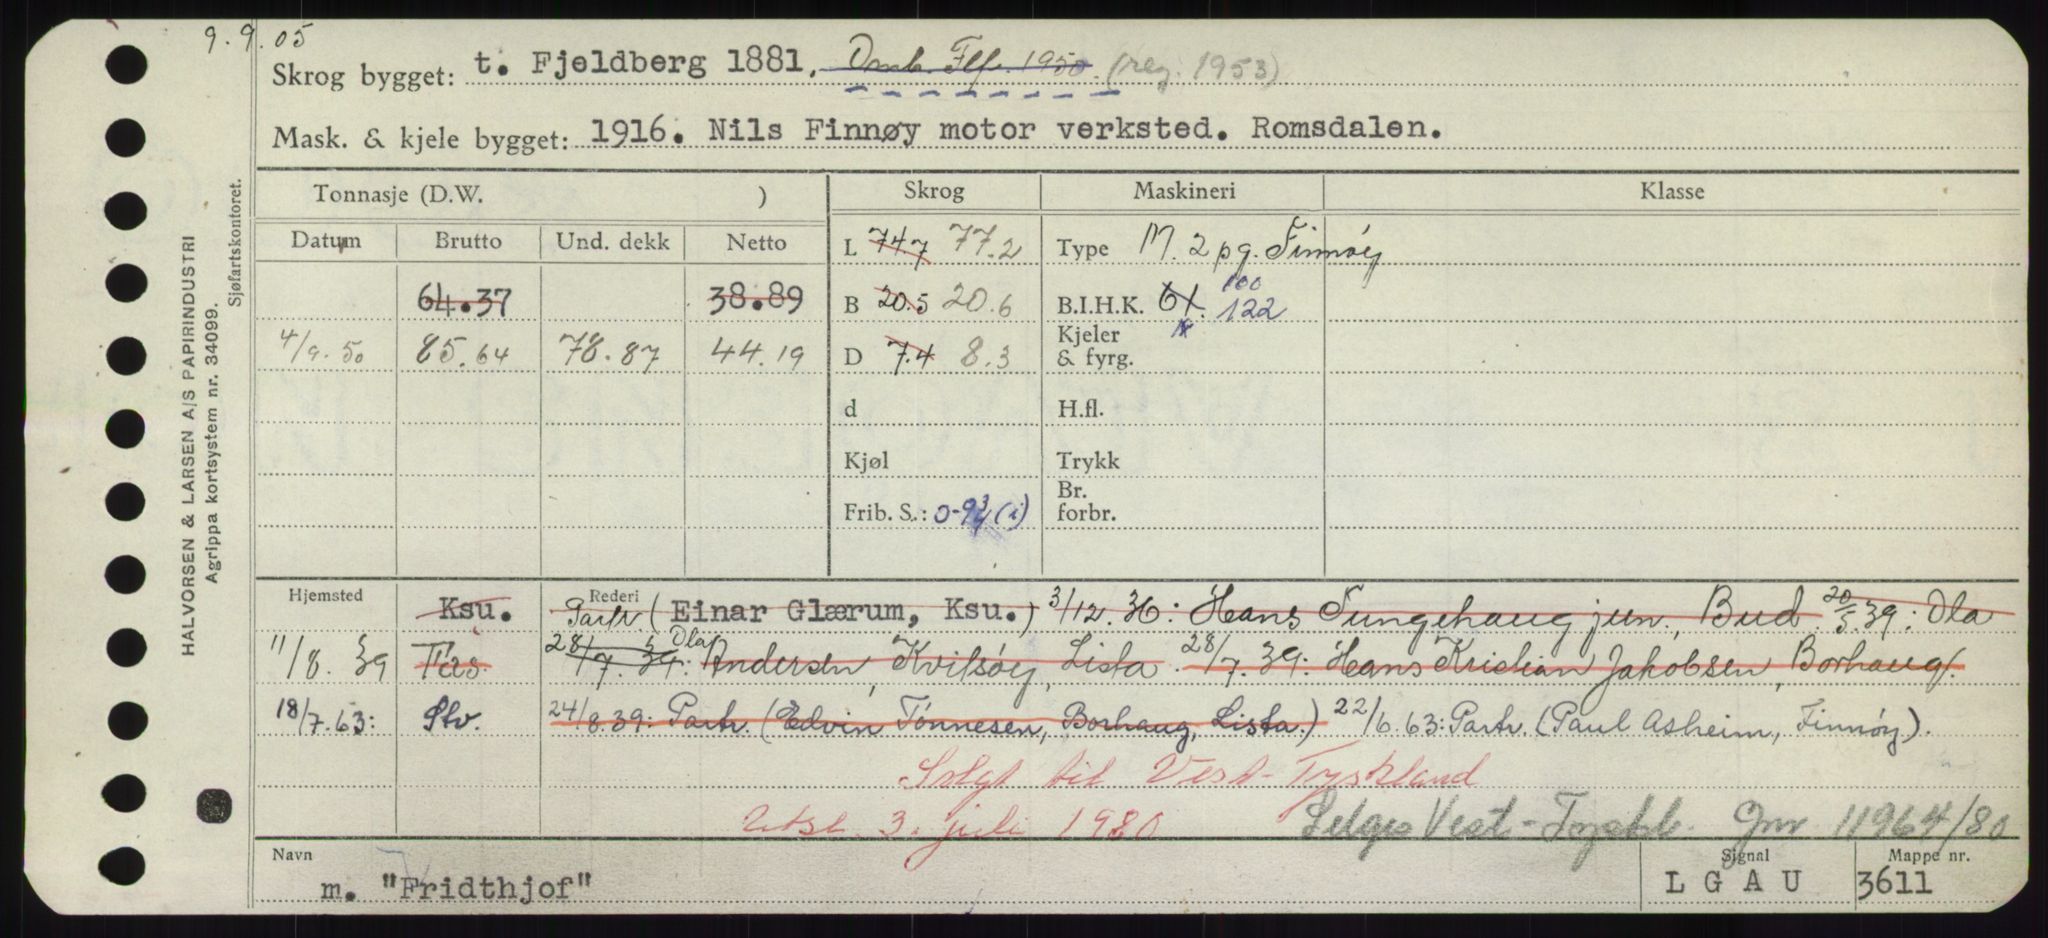 9.9.05
Skrog bygget: t. Fjeldberg 1881, Omb. Flf. 1950. (reg. 1953)
Mask. & kjele bygget: 1916. Nils Finnøy motor verksted. Romsdalen.
Tonnasje (D.W. ) Skrog Maskineri Klasse
Datum Brutto Und. dekk Netto L 74.7 77.2 Type M. 2 pg. Finnøy
64.37 38.89 B 20.5 20.6 B.I.H.K. 61. 100 122
4/9.50 85.64 78.87 44.19 D 7.4 8.3 Kjeler & fyrg.
d H.fl.
Kjøl Trykk
Frib. S.: 0-9 (i) Br. forbr.
Hjemsted Ksu. Rederi Partr. (Einar Glærum, Ksu.) 3/12.36: Hans Tungehaug jun., Bud. 20/5.39: Ola
11/8.39 Fas. 28/7.39: Ola Andersen, Kvilsøy, Lista. 28/7.39: Hans Kristian Jakobsen, Borhaug.
18/7.63: Stv. 24/8.39: Partr. (Edvin Tønnesen, Borhaug, Lista.) 22/6.63: Partr. (Paul Asheim, Finnøy).
Solgt til Vest-Tyskland
Utsl. 3. juli 1980 Selges Vest-Tyskl. Jnr 11964/80
Navn Signal Mappe nr.
m. "Fridthjof" L G A U 3611
HALVORSEN & LARSEN A/S PAPIRINDUSTRI
Agrippa kortsystem nr. 34099.
Sjøfartskontoret.